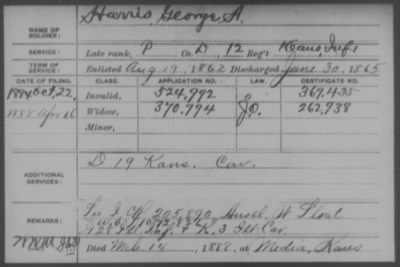 Harris, George A.
NAME OF SOLDIER:
SERVICE: Late rank, P Co. D, 12 Reg't Kans. Inf.
TERM OF SERVICE: Enlisted Aug 19, 1862 Discharged June 30, 1865
DATE OF FILING. CLASS. APPLICATION NO. LAW. CERTIFICATE NO.
1884 Oct. 22, Invalid, 524,792 369,435
1888 Apr 26 Widow, 370,774 262,738
Minor,
ADDITIONAL SERVICES: D 19 Kans. Cav.
REMARKS: 205,890, Ansel W. Sloat
Ill. Inf. & K, 3 Ill. Cav.
Died Mch 14, 1888, at Media, Kans